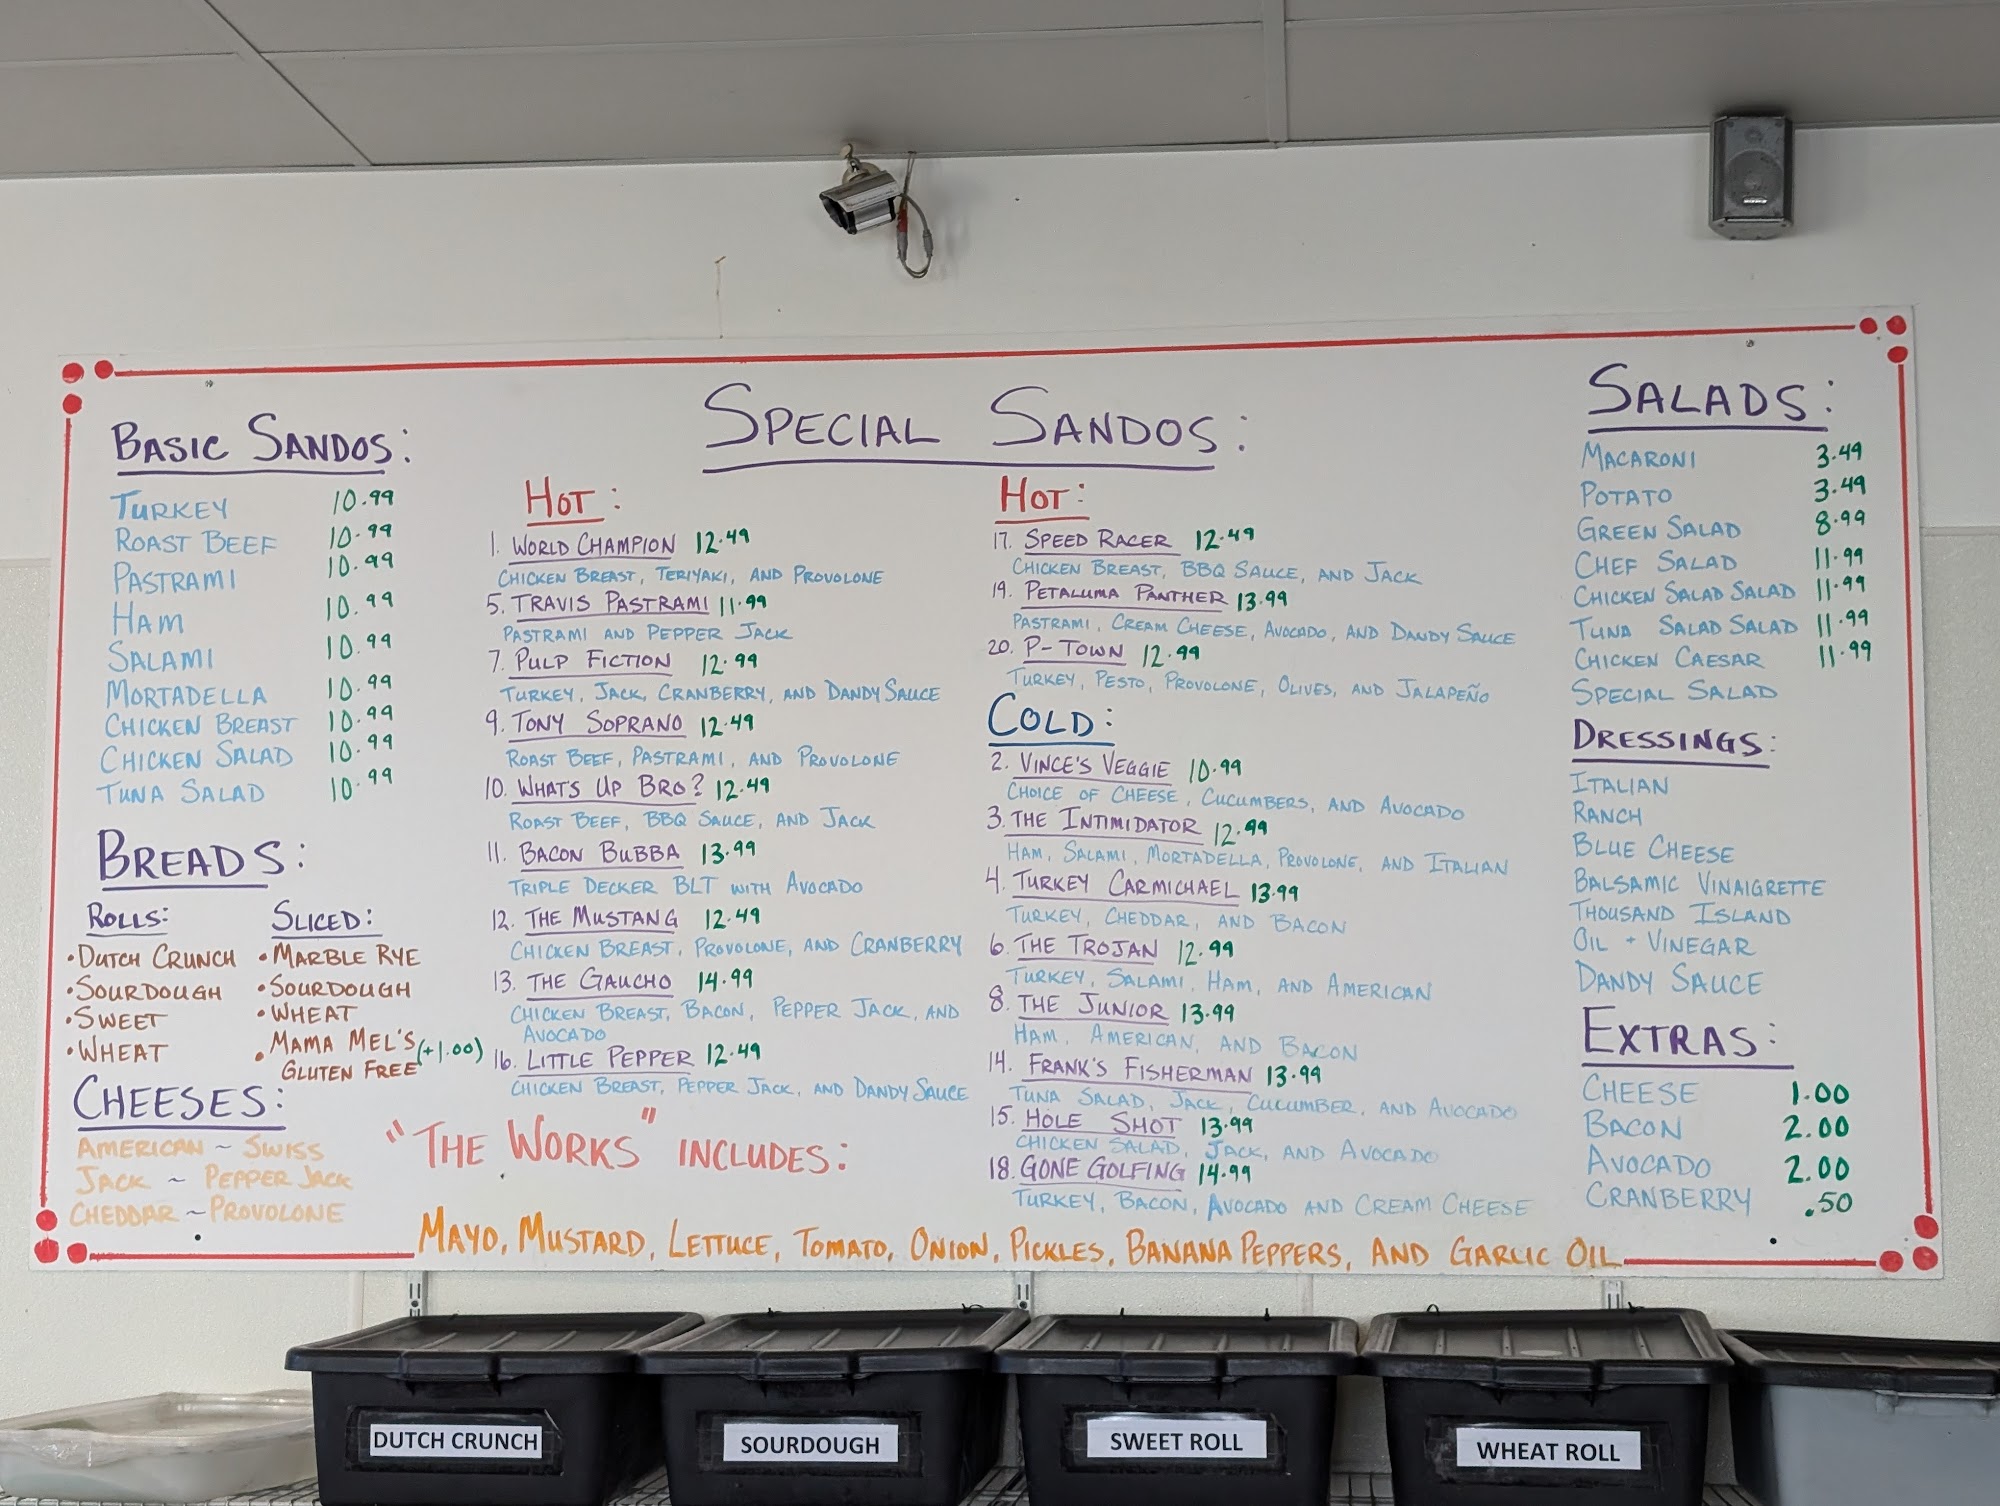 BASIC SANDOS:
TURKEY 10.99
ROAST BEEF 10.99
PASTRAMI 10.99
HAM 10.99
SALAMI 10.99
MORTADELLA 10.99
CHICKEN BREAST 10.99
CHICKEN SALAD 10.99
TUNA SALAD 10.99
BREADS:
ROLLS:
• DUTCH CRUNCH
• SOURDOUGH
• SWEET
• WHEAT
SLICED:
• MARBLE RYE
• SOURDOUGH
• WHEAT
• MAMA MEL'S (+1.00)
GLUTEN FREE
CHEESES:
AMERICAN ~ SWISS
JACK ~ PEPPER JACK
CHEDDAR ~ PROVOLONE
SPECIAL SANDOS:
HOT:
1. WORLD CHAMPION 12.49
CHICKEN BREAST, TERIYAKI, AND PROVOLONE
5. TRAVIS PASTRAMI 11.99
PASTRAMI AND PEPPER JACK
7. PULP FICTION 12.99
TURKEY, JACK, CRANBERRY, AND DANDY SAUCE
9. TONY SOPRANO 12.49
ROAST BEEF, PASTRAMI, AND PROVOLONE
10. WHAT'S UP BRO? 12.49
ROAST BEEF, BBQ SAUCE, AND JACK
11. BACON BUBBA 13.99
TRIPLE DECKER BLT WITH AVOCADO
12. THE MUSTANG 12.49
CHICKEN BREAST, PROVOLONE, AND CRANBERRY
13. THE GAUCHO 14.99
CHICKEN BREAST, BACON, PEPPER JACK, AND
AVOCADO
16. LITTLE PEPPER 12.49
CHICKEN BREAST, PEPPER JACK, AND DANDY SAUCE
HOT:
17. SPEED RACER 12.49
CHICKEN BREAST, BBQ SAUCE, AND JACK
19. PETALUMA PANTHER 13.99
PASTRAMI, CREAM CHEESE, AVOCADO, AND DANDY SAUCE
20. P-TOWN 12.99
TURKEY, PESTO, PROVOLONE, OLIVES, AND JALAPEÑO
COLD:
2. VINCE'S VEGGIE 10.99
CHOICE OF CHEESE, CUCUMBERS, AND AVOCADO
3. THE INTIMIDATOR 12.99
HAM, SALAMI, MORTADELLA, PROVOLONE, AND ITALIAN
4. TURKEY CARMICHAEL 13.99
TURKEY, CHEDDAR, AND BACON
6. THE TROJAN 12.99
TURKEY, SALAMI, HAM, AND AMERICAN
8. THE JUNIOR 13.99
HAM, AMERICAN, AND BACON
14. FRANK'S FISHERMAN 13.99
TUNA SALAD, JACK, CUCUMBER, AND AVOCADO
15. HOLE SHOT 13.99
CHICKEN SALAD, JACK, AND AVOCADO
18. GONE GOLFING 14.99
TURKEY, BACON, AVOCADO AND CREAM CHEESE
SALADS:
MACARONI 3.49
POTATO 3.49
GREEN SALAD 8.99
CHEF SALAD 11.99
CHICKEN SALAD SALAD 11.99
TUNA SALAD SALAD 11.99
CHICKEN CAESAR 11.99
SPECIAL SALAD
DRESSINGS:
ITALIAN
RANCH
BLUE CHEESE
BALSAMIC VINAIGRETTE
THOUSAND ISLAND
OIL + VINEGAR
DANDY SAUCE
EXTRAS:
CHEESE 1.00
BACON 2.00
AVOCADO 2.00
CRANBERRY .50
"THE WORKS" INCLUDES:
MAYO, MUSTARD, LETTUCE, TOMATO, ONION, PICKLES, BANANA PEPPERS, AND GARLIC OIL
DUTCH CRUNCH
SOURDOUGH
SWEET ROLL
WHEAT ROLL